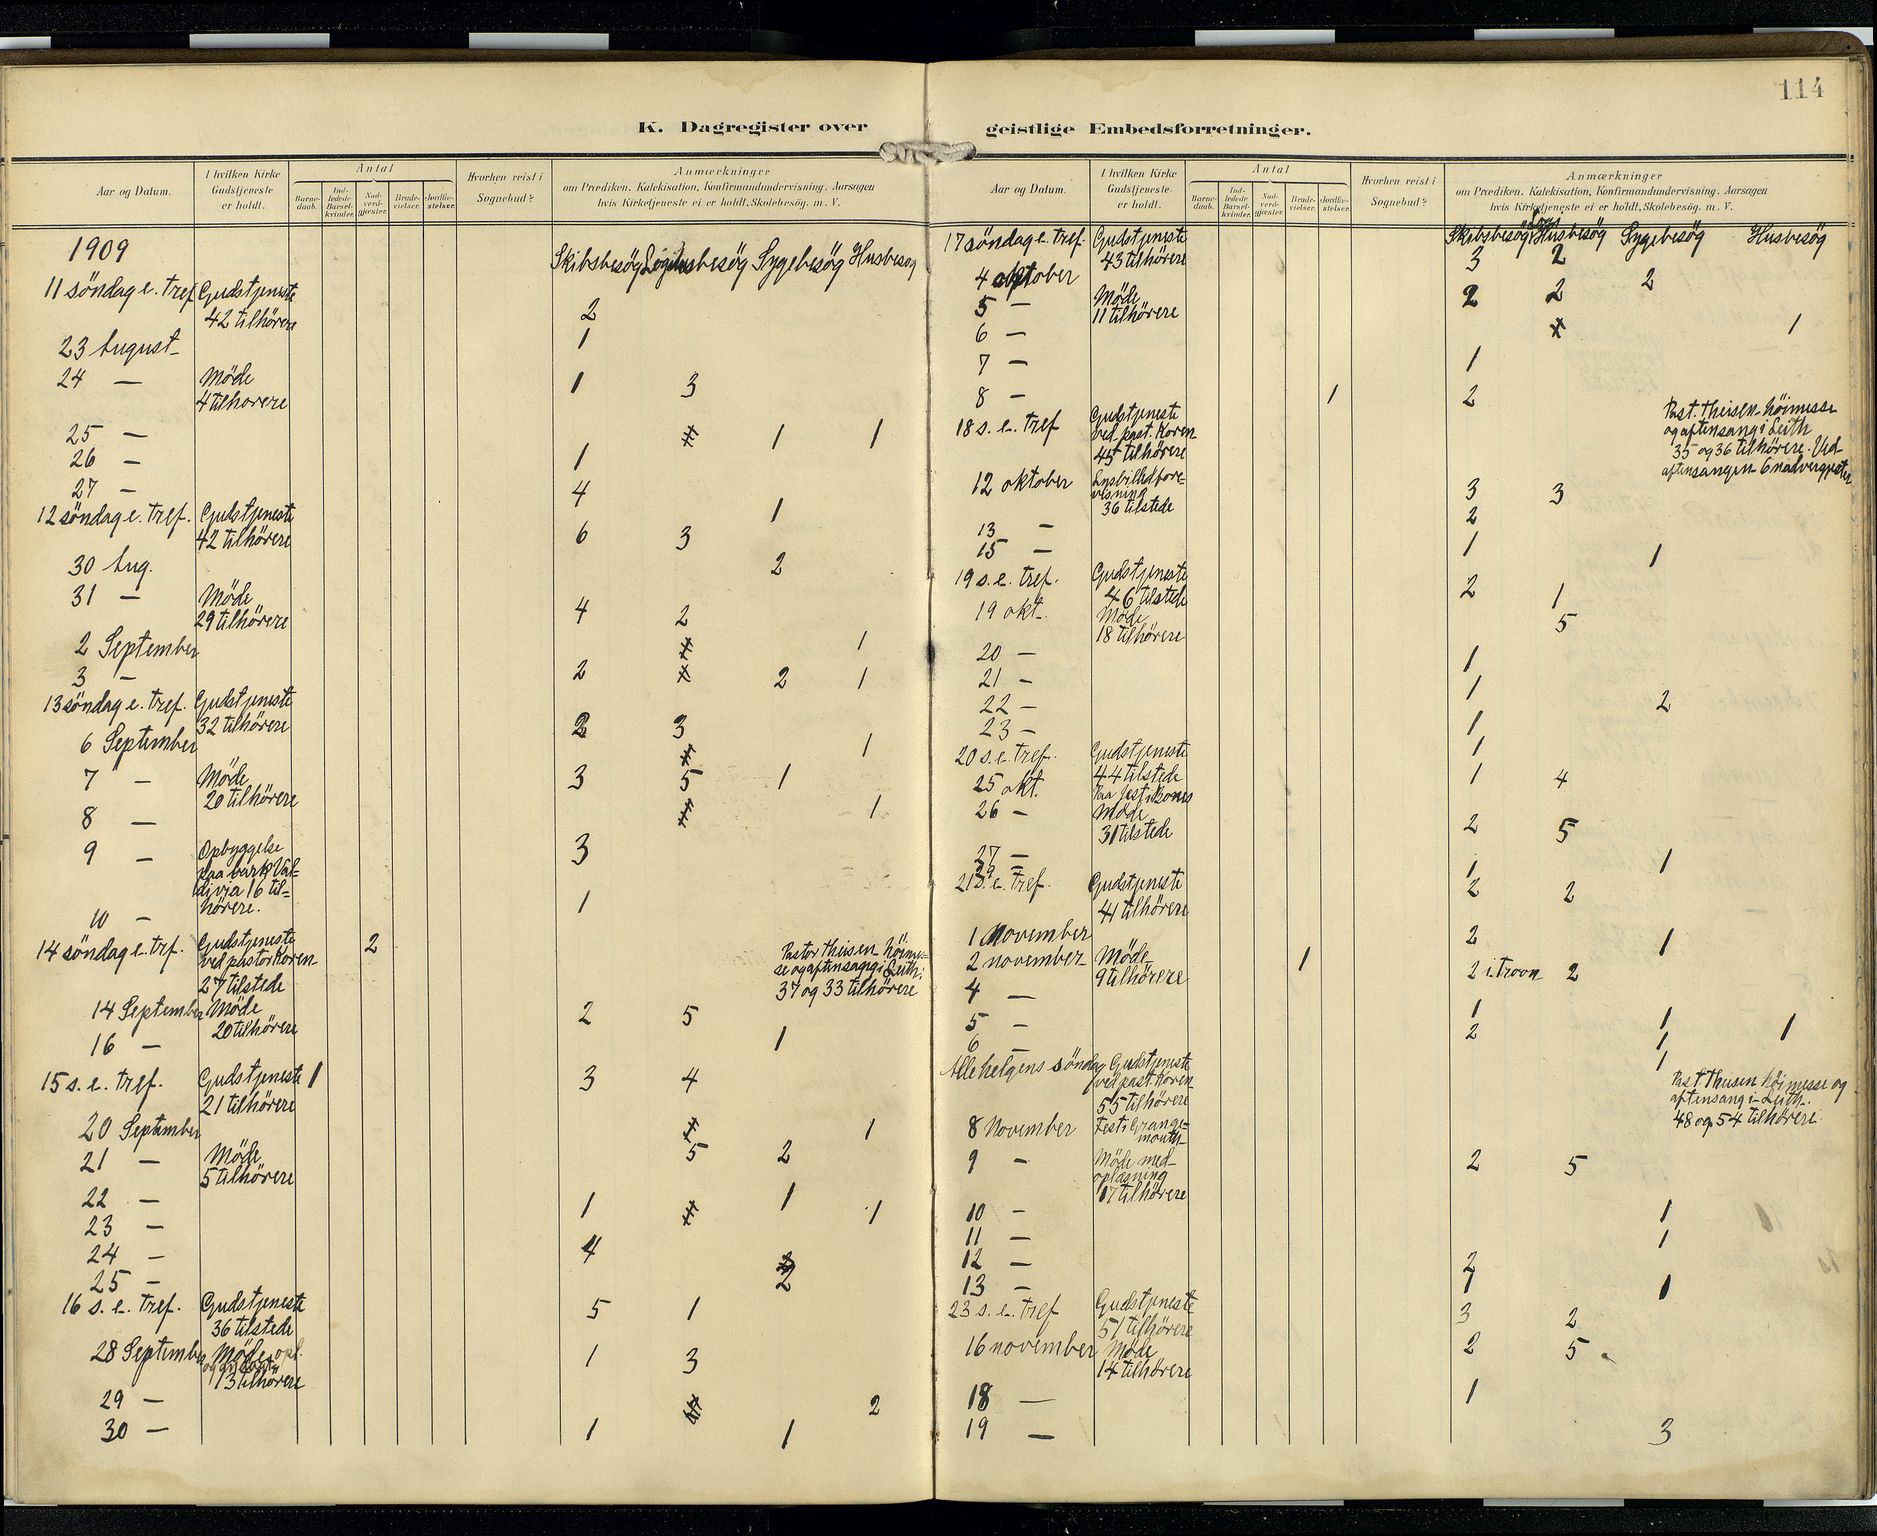 114
K. Dagregister over geistlige Embedsforretninger.
Aar og Datum.
I hvilken Kirke Gudstjeneste er holdt.
Antal
Barne-daab.
Ind-ledede Barsel-kvinder.
Nad-verd-gjæster.
Brude-vielser.
Jordfæ-stelser.
Hvorhen reist i Sognebud?
Anmærkninger
om Prædiken, Katekisation, Konfirmandundervisning, Aarsagen
hvis Kirketjeneste ei er holdt, Skolebesøg. m. V.
1909 Skibsbesøg Logihusbesøg Sygebesøg Husbesøg
11 söndag e. tref. Gudstjeneste
42 tilhörere 2
23 August 1
24 — Möde
4 tilhorere 1 3
25 — 1 1
26 — 1
27 — 4
12 söndag e. tref. Gudstjeneste 1
42 tilhörere 6 3
30 Aug. 2
31 — Möde
29 tilhörere 4 2
2 September 1
3 — 2 2 1
13 söndag e. tref. Gudstjeneste
32 tilhörere 2 3
6 September 1
7 — Möde 3 5 1
20 tilhörere
8 — 1
9 — Opbyggelse 3
paa bark Val-
divia 16 til-
hörere.
10 — 1
14 söndag e. tref. Gudstjeneste 2 Pastor Theisen höimes-
ved pastor Koren se og aftensang i Leith:
27 tilstede 37 og 33 tilhörere
14 September Möde 2 5
20 tilhörere
16 — 1
15 s. e. tref. Gudstjeneste 1 3 4
21 tilhörere
20 September 1
21 — Möde 5 2
5 tilhörere
22 — 1 1
23 — 1
24 — 4
25 — 2
16 s. e. tref. Gudstjeneste 5 1
36 tilstede
28 September Möde opl. 1 3
13 tilhörere
29 — 2
30 — 1 1
Aar og Datum.
I hvilken Kirke Gudstjeneste er holdt.
Antal
Barne-daab.
Ind-ledede Barsel-kvinder.
Nad-verd-gjæster.
Brude-vielser.
Jordfæ-stelser.
Hvorhen reist i Sognebud?
Anmærkninger
om Prædiken, Katekisation, Konfirmandundervisning, Aarsagen
hvis Kirketjeneste ei er holdt, Skolebesøg. m. V.
Skibsbesøg Logihusbesøg Sygebesøg Husbesøg
17 söndag e. tref. Gudstjeneste
43 tilhörere 3 2
4 oktober 2
5 — Möde 2 2
11 tilhörere
6 — 1
7 — 1
8 — 1 2
18 s. e. tref Gudstjeneste Past. Theisen höimesse
ved past. Koren og aftensang i Leith
45 tilhörere 35 og 36 tilhörere. Ved
12 oktober Lysbilledfore- aftensangen 6 nadvergjester
visning 3 3
36 tilstede
13 — 2
15 — 1 1
19 s. e. tref. Gudstjeneste 2 1
46 tilstede
19 okt. Möde 5
18 tilhörere
20 — 1
21 — 1
22 — 1 2
23 — 1
20 s. e. tref. Gudstjeneste
44 tilstede 1 4
25 okt.
26 — Möde 2 5
31 tilstede
27 — 1
21 s. e. tref. Gudstjeneste 2 2
41 tilhörere
1 November 2 1
2 november Möde 1 2 i Troon 2
9 tilhörere
4 — 1 1 1
5 — 2 1
6 — 1
Allehelgens söndag Gudstjeneste Past Theisen höimesse og
ved past. Koren aftensang i Leith.
55 tilhörere 48 og 54 tilhörere
8 November Fest i Grange-
mouth
9 — Möde med 2 5
oplæsning
17 tilhörere
10 — 1
11 — 1
12 — 2
13 — 1 1
23 s. e. tref Gudstjeneste 3 2
51 tilhörere
16 november Möde 2 5
14 tilhörere
18 — 1
19 — 3